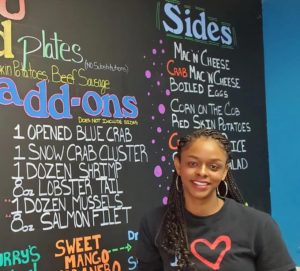 d Plates
(No Substitutions)
skin Potatoes, Beef Sausage
add-ons
Does not include sides
1 Opened Blue Crab
1 Snow Crab Cluster
1 Dozen Shrimp
8oz Lobster Tail
1 Dozen Mussels
8oz Salmon Filet
Sweet
Mango
Sides
Mac'n'Cheese
Crab Mac'n'Cheese
Boiled Eggs
Corn on the Cob
Red Skin Potatoes
I